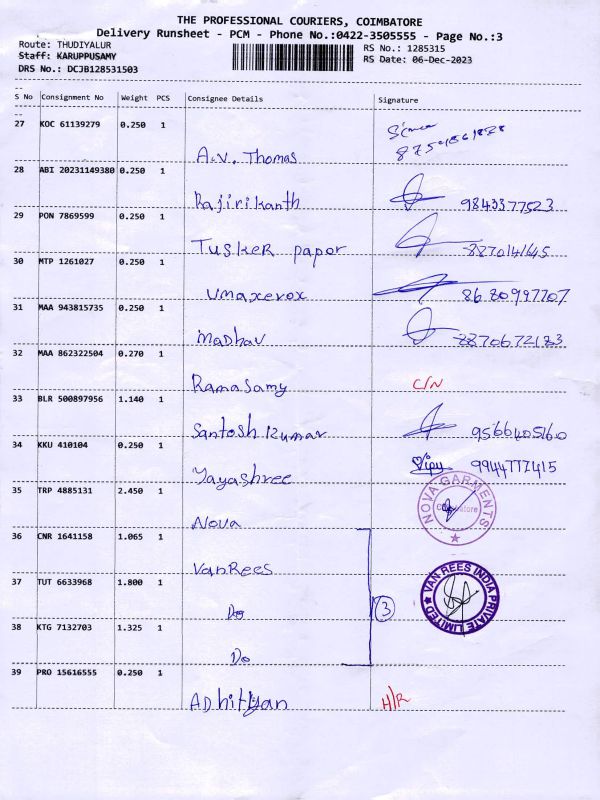 THE PROFESSIONAL COURIERS, COIMBATORE
Delivery Runsheet - PCM - Phone No.:0422-3505555 - Page No.:3
Route: THUDIYALUR RS No.: 1285315
Staff: KARUPPUSAMY RS Date: 06-Dec-2023
DRS No.: DCJB128531503
S No Consignment No Weight PCS Consignee Details Signature
27 KOC 61139279 0.250 1
A.V. Thomas
28 ABI 20231149380 0.250 1
Rajirikanth 9843377523
29 PON 7869599 0.250 1
TUSKER papor 8870141645
30 MTP 1261027 0.250 1
Umaxerox 8680997707
31 MAA 943815735 0.250 1
Madhav 8870672183
32 MAA 862322504 0.270 1
Ramasamy C/N
33 BLR 500897956 1.140 1
Santosh Kumar 9566405160
34 KKU 410104 0.250 1
Jayashree Vipy 9944777415
35 TRP 4885131 2.450 1
Nova NOVA GARMENTS
36 CNR 1641158 1.065 1
VanRees
37 TUT 6633968 1.800 1
Do 3 VAN REES INDIA PRIVATE LIMITED
38 KTG 7132703 1.325 1
Do
39 PRO 15616555 0.250 1
Adhityan H/R